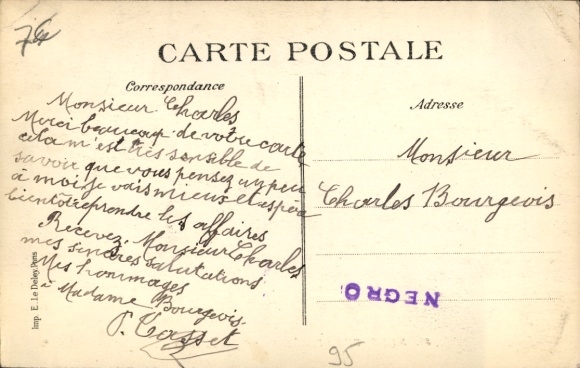 74
CARTE POSTALE
Correspondance
Monsieur Charles
Merci beaucoup de votre carte,
cela m'est très sensible de
savoir que vous pensez un peu
à moi, je vais mieux et espère
bientôt reprendre les affaires
Recevez, Monsieur Charles
mes sincères salutations
Mes hommages
à Madame Bourgeois
Adresse
Monsieur
Charles Bourgeois
NEGRO
95
Imp. E. Le Deley, Paris